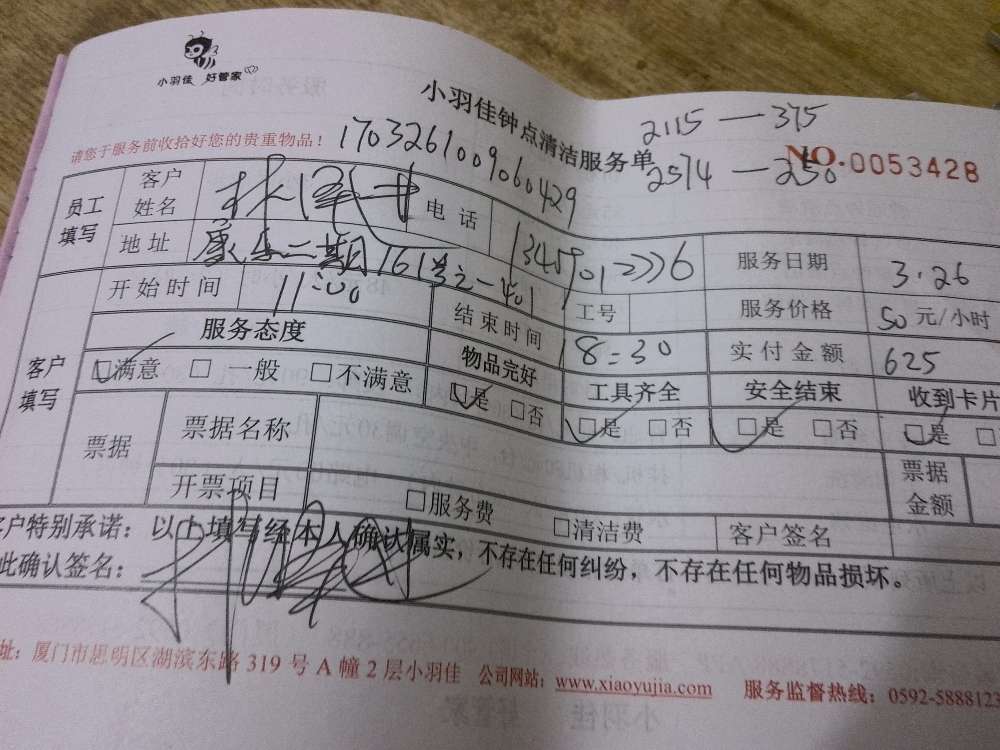 小羽佳 好管家
小羽佳钟点清洁服务单
2115 — 375
请您于服务前收拾好您的贵重物品！
1703261009060429
2574 — 250
NO.0053428
员工填写
客户姓名
电话
服务日期 3.26
地址
工号
服务价格 50 元/小时
客户填写
开始时间 11:00
结束时间 18:30
实付金额 625
服务态度
物品完好
工具齐全
安全结束
收到卡片
□满意 □一般 □不满意
□是 □否
□是 □否
□是 □否
□是
票据
票据名称
票据金额
开票项目
□服务费
□清洁费
客户签名
客户特别承诺：以上填写经本人确认属实，不存在任何纠纷，不存在任何物品损坏。
此确认签名：
址：厦门市思明区湖滨东路 319 号 A 幢 2 层小羽佳 公司网站：www.xiaoyujia.com 服务监督热线：0592-5888123